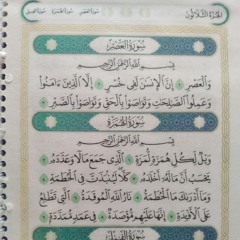 الجزء الثلاثون
سورة العصر سورة الهمزة سورة الفيل
سورة العصر
بسم الله الرحمن الرحيم
والعصر ۝ إن الإنسن لفى خسر ۝ إلا الذين ءامنوا
وعملوا الصلحت وتواصوا بالحق وتواصوا بالصبر ۝
سورة الهمزة
بسم الله الرحمن الرحيم
ويل لكل همزة لمزة ۝ الذى جمع مالا وعدده ۝
يحسب أن ماله أخلده ۝ كلا لينبذن فى الحطمة ۝
وما أدرىك ما الحطمة ۝ نار الله الموقدة ۝ التى تطلع
على الأفـدة ۝ إنها عليهم مؤصدة ۝ فى عمد ممددة ۝
سورة الفيل